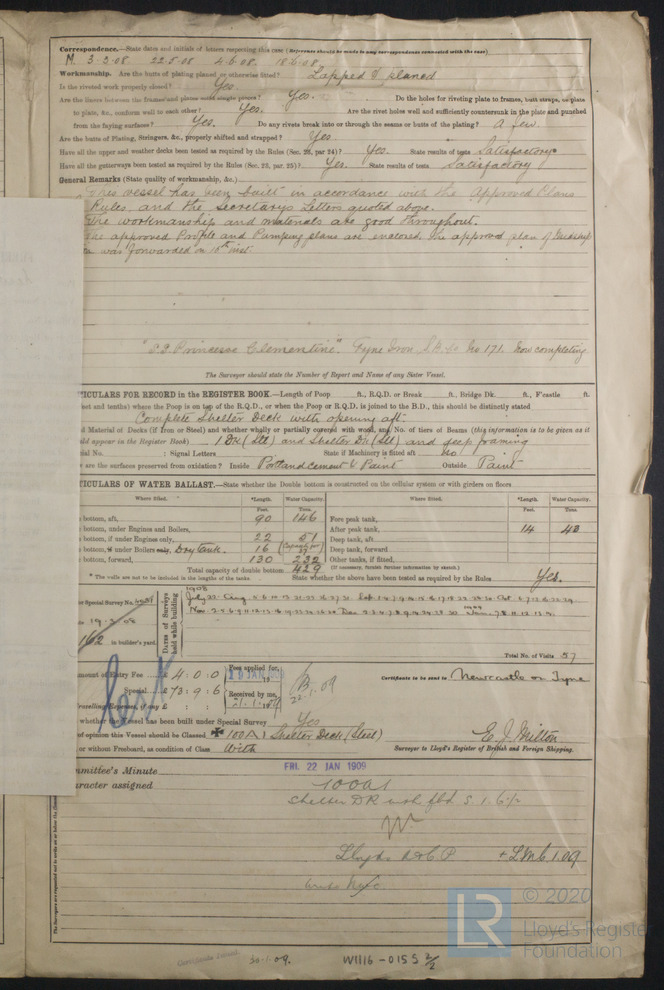 Correspondence.—State dates and initials of letters respecting this case (Reference should be made to any correspondence connected with the case)
M. 3·3·08 22·5·08 4·6·08 18·6·08
Workmanship. Are the butts of plating planed or otherwise fitted? Lapped & planed
Is the riveted work properly closed? Yes.
Are the liners between the frames and plates solid single pieces? Yes. Do the holes for riveting plate to frames, butt straps, or plate
to plate, &c., conform well to each other? Yes. Are the rivet holes well and sufficiently countersunk in the plate and punched
from the faying surfaces? Yes. Do any rivets break into or through the seams or butts of the plating? A few
Are the butts of Plating, Stringers, &c., properly shifted and strapped? Yes
Have all the upper and weather decks been tested as required by the Rules (Sec. 23, par 24)? Yes. State results of tests Satisfactory
Have all the gutterways been tested as required by the Rules (Sec. 23, par. 25)? Yes. State results of tests Satisfactory
General Remarks (State quality of workmanship, &c.)
This vessel has been built in accordance with the Approved Plans
Rules and the Secretarys Letters quoted above.
The workmanship and materials are good throughout.
The approved Profile and Pumping plans are enclosed. The approved plan of Midship
was forwarded on 16th inst.
"S.S. Princesse Clementine". Tyne Iron S.B. Co No 171. Now completing
The Surveyor should state the Number of Report and Name of any Sister Vessel.
TICULARS FOR RECORD in the REGISTER BOOK.—Length of Poop ft., R.Q.D. or Break ft., Bridge Dk. ft., F'castle ft.
eet and tenths) where the Poop is on top of the R.Q.D., or when the Poop or R.Q.D. is joined to the B.D., this should be distinctly stated
Complete Shelter Deck with opening aft.
d Material of Decks (if Iron or Steel) and whether wholly or partially covered with wood, and No. of tiers of Beams (this information is to be given as it
ld appear in the Register Book) 1 Dk (Stl) and Shelter Dk (Stl) and deep framing
ial No. : Signal Letters State if Machinery is fitted aft no
are the surfaces preserved from oxidation? Inside Portland cement & Paint Outside Paint
TICULARS OF WATER BALLAST.—State whether the Double bottom is constructed on the cellular system or with girders on floors
Where fitted. *Length. Water Capacity. Where fitted. *Length. Water Capacity.
Feet. Tons. Feet. Tons.
bottom, aft, 90 146 Fore peak tank,
bottom, under Engines and Boilers, After peak tank, 14 40
bottom, if under Engines only, 22 51 Deep tank, aft
bottom, if under Boilers only, Dry tank. 16 Deep tank, forward
bottom, forward, 130 232 Other tanks, if fitted,
Total capacity of double bottom 429 (If necessary, furnish further information by sketch.)
* The wells are not to be included in the lengths of the tanks. State whether the above have been tested as required by the Rules Yes.
r Special Survey No.
19·3·08
162 in builder's yard.
Dates of Surveys held while building
1908
1909
Total No. of Visits 57
mount of Entry Fee £ 4 : 0 : 0 Fees applied for, 19 JAN 1909 Certificate to be sent to Newcastle on Tyne
Special £ 73 : 9 : 6 Received by me,
Travelling Expenses, if any £ : : 22·1·09
whether the Vessel has been built under Special Survey Yes
of opinion this Vessel should be Classed ✠ 100A1 Shelter Deck (Steel)
or without Freeboard, as condition of Class With
E. J. Milton
Surveyor to Lloyd's Register of British and Foreign Shipping.
mmittee's Minute FRI. 22 JAN 1909
aracter assigned 100A1
Shelter Dk with fbd
Lloyds A & C P + LMC 1.09
30·1·09. W1116-0155 2/2
© 2020
LR
Lloyd's Register
Foundation